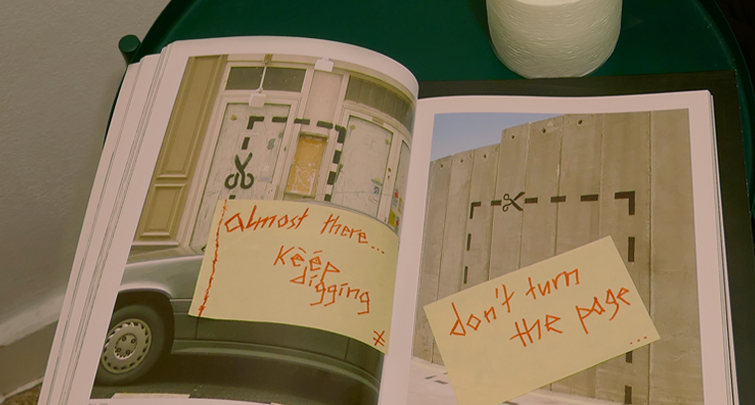 almost there...
Kèép
digging
don't turn
the page
...